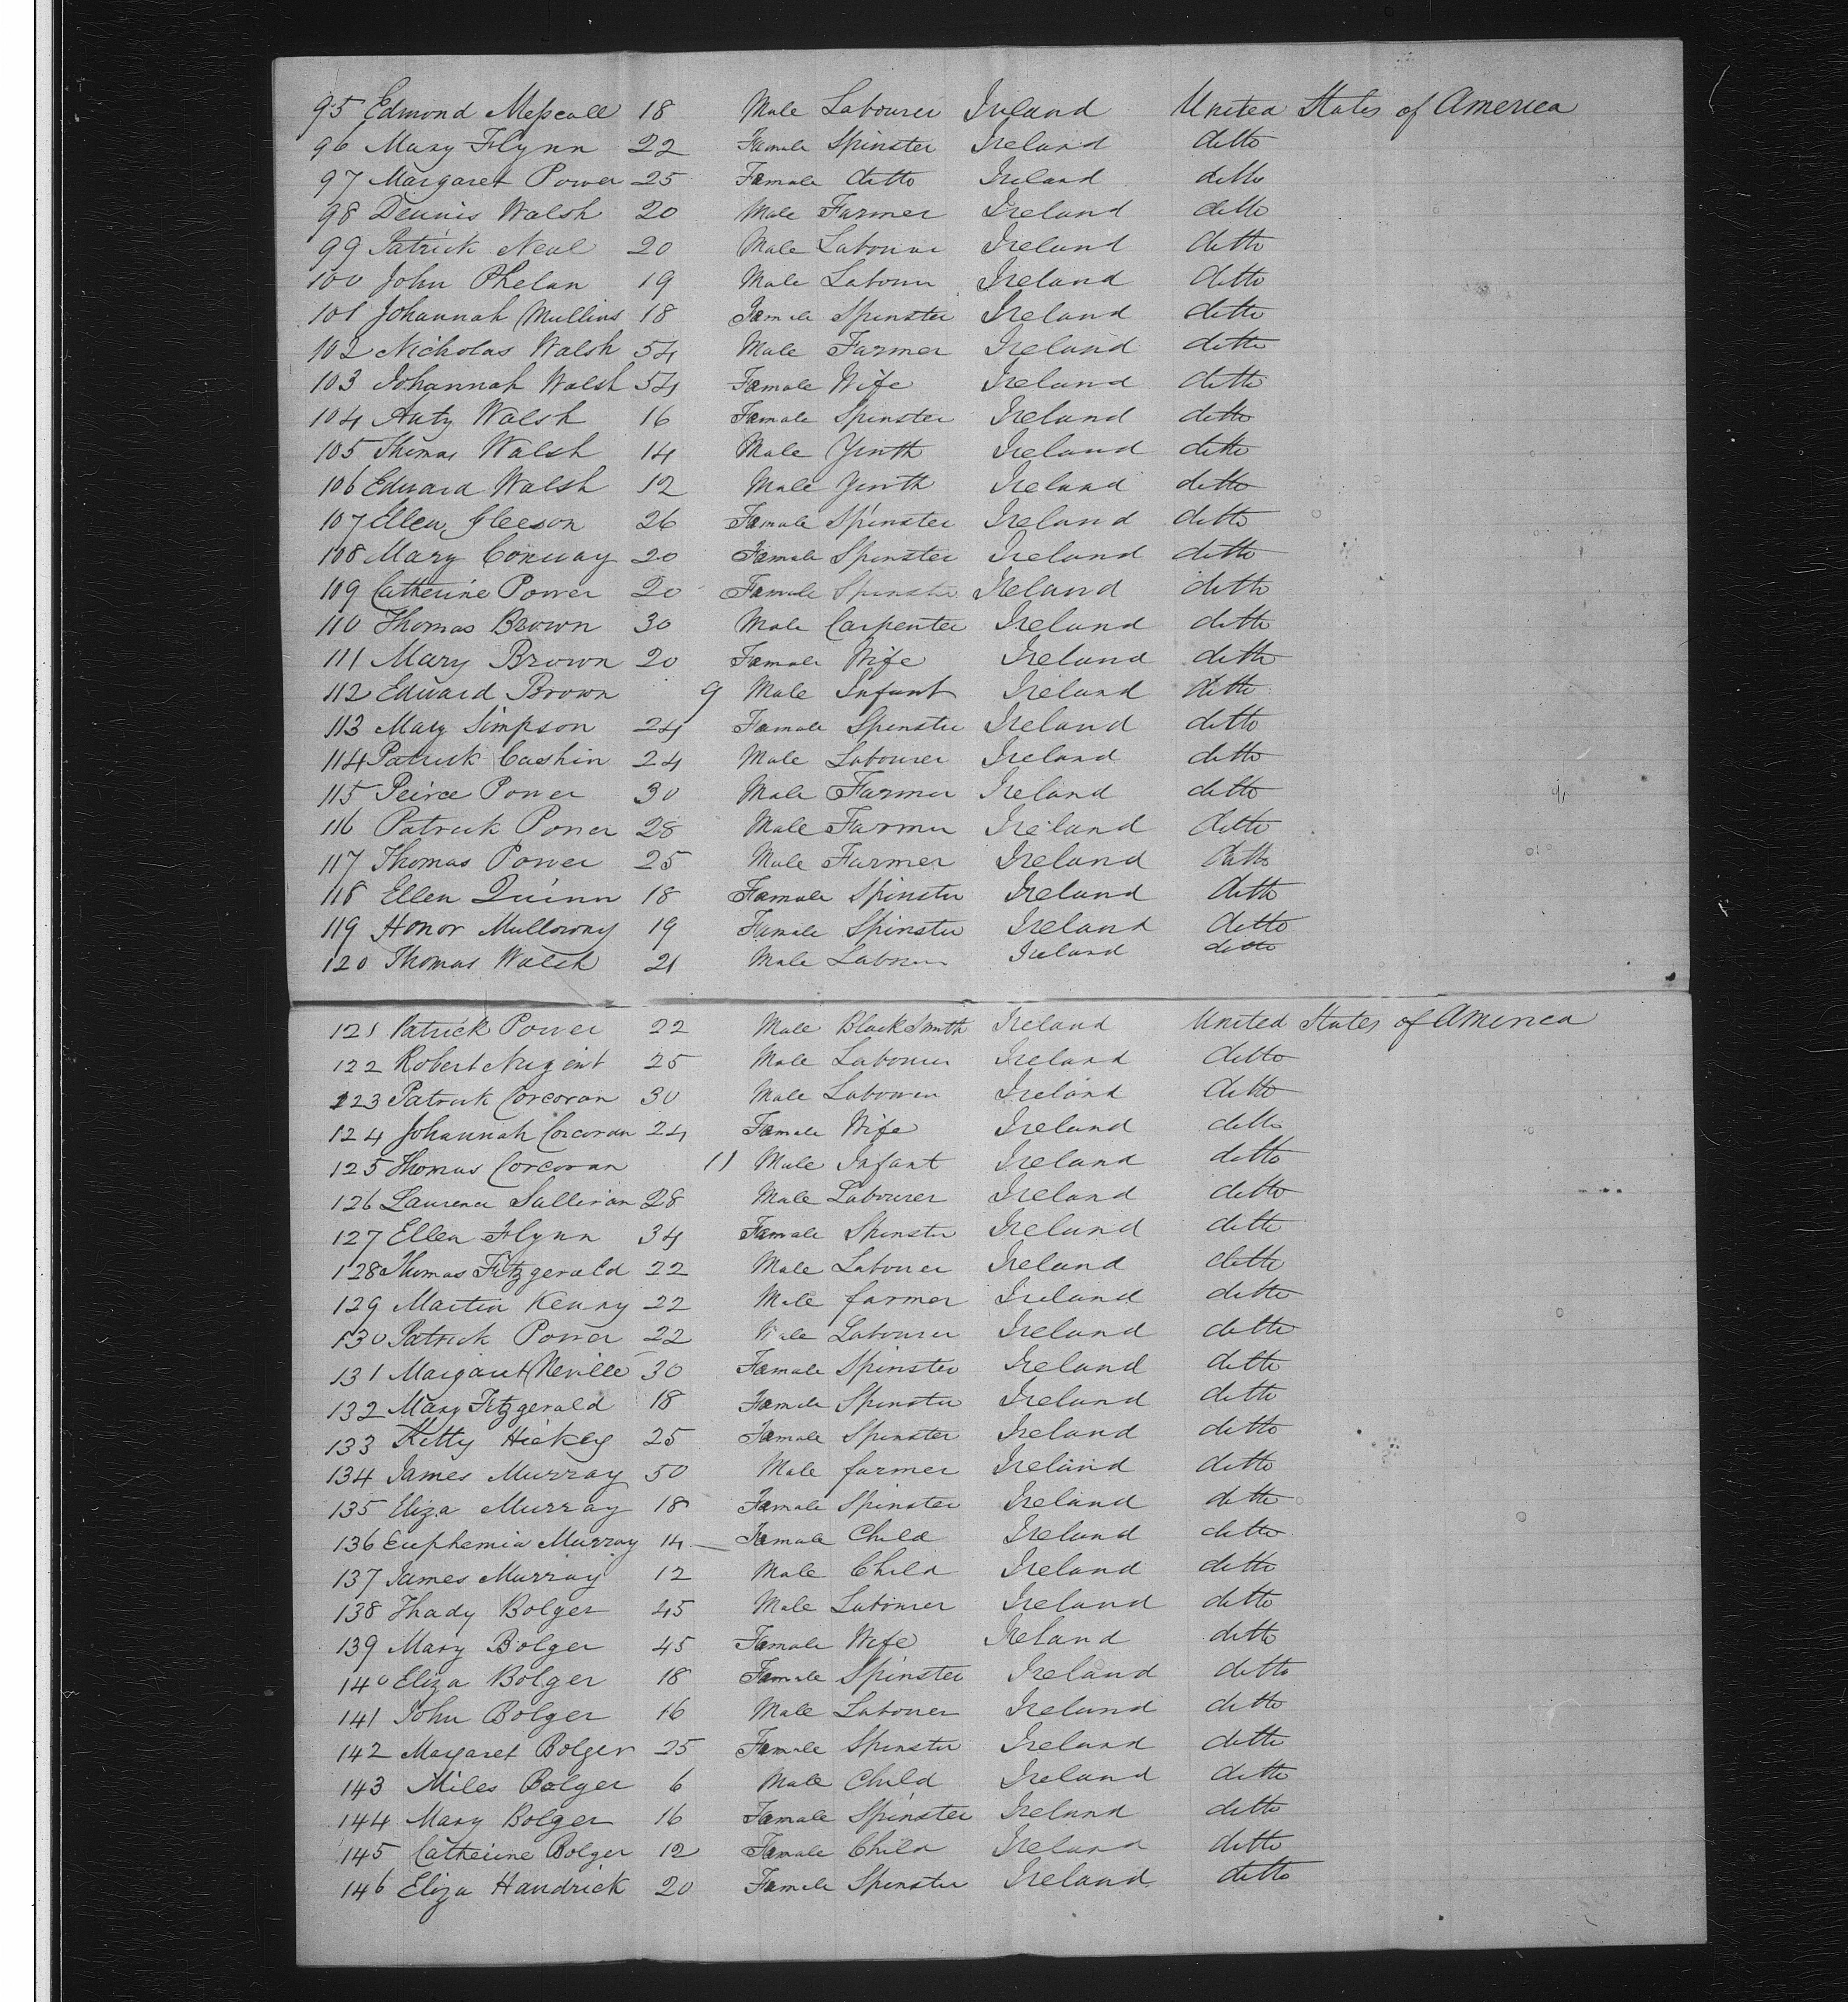 95 Edmond Mescall 18 Male Labourer Ireland United States of America
96 Mary Flynn 22 Famale Spinster Ireland ditto
97 Margaret Power 25 Famale ditto Ireland ditto
98 Dennis Walsh 20 Male Farmer Ireland ditto
99 Patrick Neal 20 Male Labourer Ireland ditto
100 John Phelan 19 Male Labourer Ireland ditto
101 Johannah Mullins 18 Famale Spinster Ireland ditto
102 Nicholas Walsh 54 Male Farmer Ireland ditto
103 Johannah Walsh 54 Famale Wife Ireland ditto
104 Anty Walsh 16 Famale Spinster Ireland ditto
105 Thomas Walsh 14 Male Youth Ireland ditto
106 Edward Walsh 12 Male Youth Ireland ditto
107 Ellen Gleeson 26 Famale Spinster Ireland ditto
108 Mary Conway 20 Famale Spinster Ireland ditto
109 Catherine Power 20 Famale Spinster Ireland ditto
110 Thomas Brown 30 Male Carpenter Ireland ditto
111 Mary Brown 20 Famale Wife Ireland ditto
112 Edward Brown 9 Male Infant Ireland ditto
113 Mary Simpson 24 Famale Spinster Ireland ditto
114 Patrick Cashin 24 Male Labourer Ireland ditto
115 Peirce Power 30 Male Farmer Ireland ditto
116 Patrick Power 28 Male Farmer Ireland ditto
117 Thomas Power 25 Male Farmer Ireland ditto
118 Ellen Quinn 18 Famale Spinster Ireland ditto
119 Honor Mullowny 19 Famale Spinster Ireland ditto
120 Thomas Walsh 21 Male Labourer Ireland ditto
121 Patrick Power 22 Male BlackSmith Ireland United States of America
122 Robert Nugent 25 Male Labourer Ireland ditto
123 Patrick Corcoran 30 Male Labourer Ireland ditto
124 Johannah Corcoran 24 Famale Wife Ireland ditto
125 Thomas Corcoran 11 Male Infant Ireland ditto
126 Laurence Sullivan 28 Male Labourer Ireland ditto
127 Ellen Flynn 34 Famale Spinster Ireland ditto
128 Thomas Fitzgerald 22 Male Labourer Ireland ditto
129 Martin Kenny 22 Male farmer Ireland ditto
130 Patrick Power 22 Male Labourer Ireland ditto
131 Margaret Neville 30 Famale Spinster Ireland ditto
132 Mary Fitzgerald 18 Famale Spinster Ireland ditto
133 Kitty Hickey 25 Famale Spinster Ireland ditto
134 James Murray 50 Male farmer Ireland ditto
135 Eliza Murray 18 Famale Spinster Ireland ditto
136 Euphemia Murray 14 Famale Child Ireland ditto
137 James Murray 12 Male Child Ireland ditto
138 Thady Bolger 45 Male Labourer Ireland ditto
139 Mary Bolger 45 Famale Wife Ireland ditto
140 Eliza Bolger 18 Famale Spinster Ireland ditto
141 John Bolger 16 Male Labourer Ireland ditto
142 Margaret Bolger 25 Famale Spinster Ireland ditto
143 Miles Bolger 6 Male Child Ireland ditto
144 Mary Bolger 16 Famale Spinster Ireland ditto
145 Catherine Bolger 12 Famale Child Ireland ditto
146 Eliza Handrick 20 Famale Spinster Ireland ditto